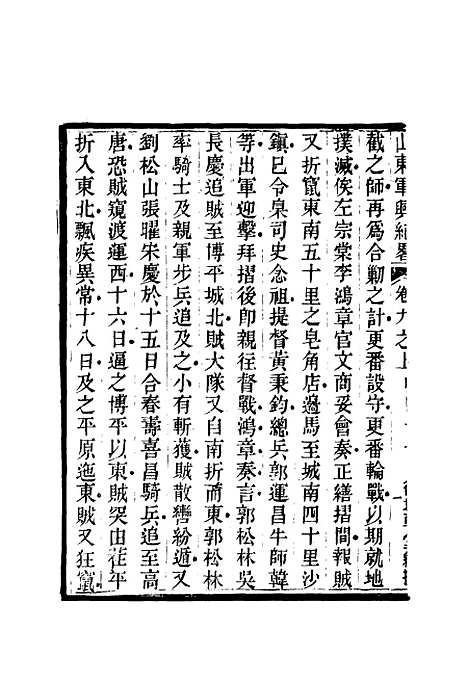 山東軍興紀畧 卷九之上
截之師再爲合勦之計更番設守更番輪戰以期就地
撲滅俟左宗棠李鴻章官文商妥會奏正繕摺間報賊
又折竄東南五十里之皂角店邊馬至城南四十里沙
鎭已令臬司史念祖提督黃秉鈞總兵郭運昌牛師韓
等出軍迎擊拜摺後卽親往督戰鴻章奏言郭松林吳
長慶追賊至博平城北賊大隊又自南折而東郭松林
率騎士及親軍步兵追及之小有斬獲賊散轡紛遁又
劉松山張曜宋慶於十五日合春壽喜昌騎兵追至高
唐恐賊窺渡運西十六日逼之博平以東賊突由茌平
折入東北飄疾異常十八日及之平原迤東賊又狂竄